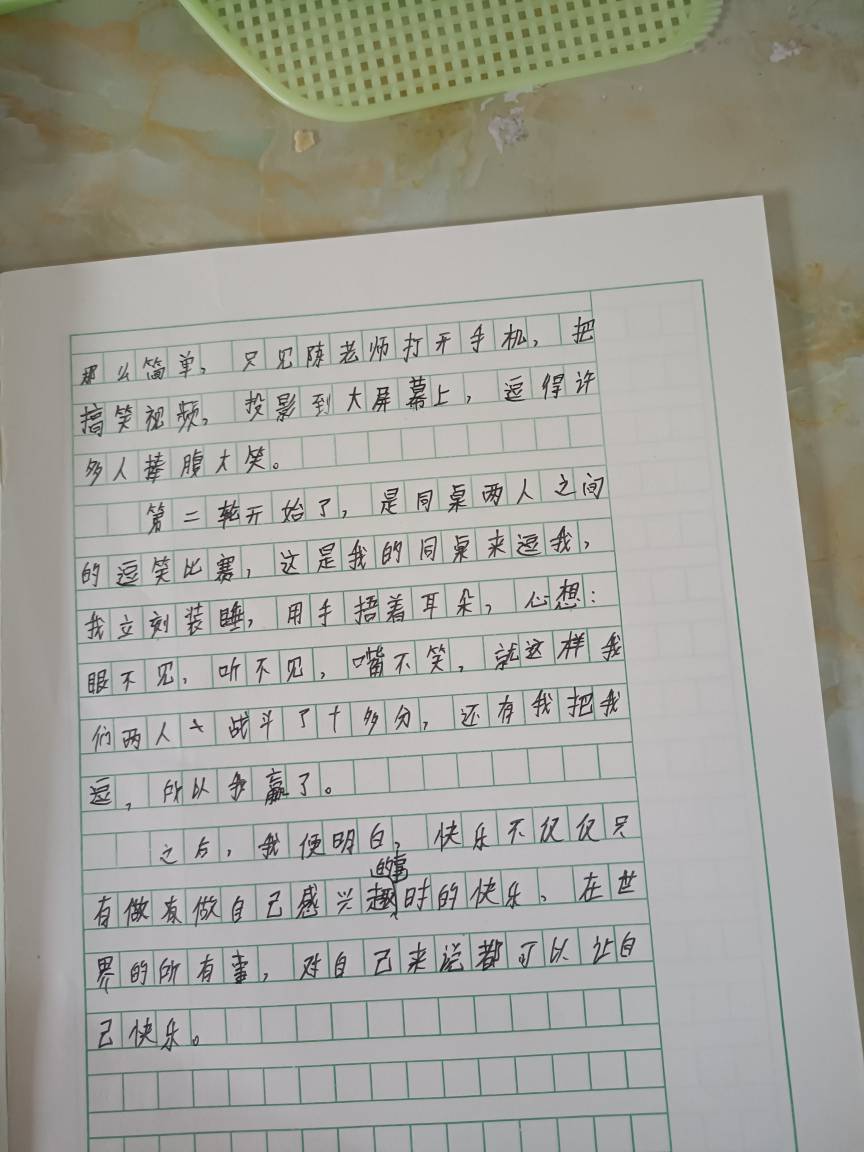 那么简单，只见陈老师打开手机，把
搞笑视频，投影到大屏幕上，逗得许
多人捧腹大笑。
第二轮开始了，是同桌两人之间
的逗笑比赛，这是我的同桌来逗我，
我立刻装睡，用手捂着耳朵，心想：
眼不见，听不见，嘴不笑，就这样我
们两人大战斗了十多分，还有我把我
逗，所以我赢了。
之后，我便明白，快乐不仅仅只
有做有做自己感兴趣的事时的快乐、在世
界的所有事，对自己来说都可以让自
己快乐。